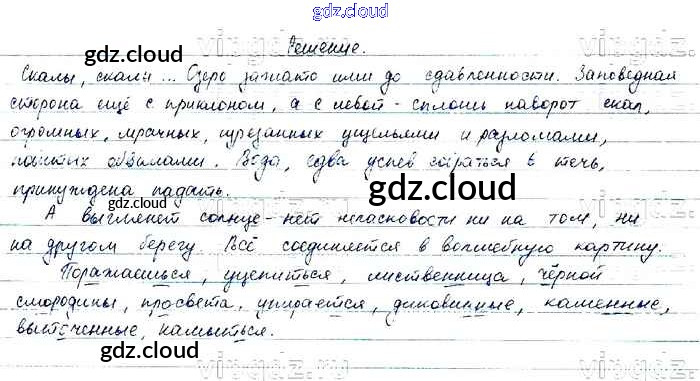 gdz.cloud
Решение.
gdz.cloud
Скалы, скалы... Озеро зажато ими до сдавленности. Заповедная
сторона ещё с приклоном, а с левой - сплошь наворот скал,
огромных, мрачных, изрезанных ущельями и разломами,
обвалами. Вода, едва успев собраться в течь,
принуждена падать.
gdz.cloud
А выглянет солнце - нет неласковости ни на том, ни
на другом берегу. Всё соединяется в волшебную картину.
Поражаешься, уцепиться, лиственница, чёрной
смородины, просвета, упирается, диковинные, каменные,
выточенные, намыться.
gdz.cloud
gdz.cloud